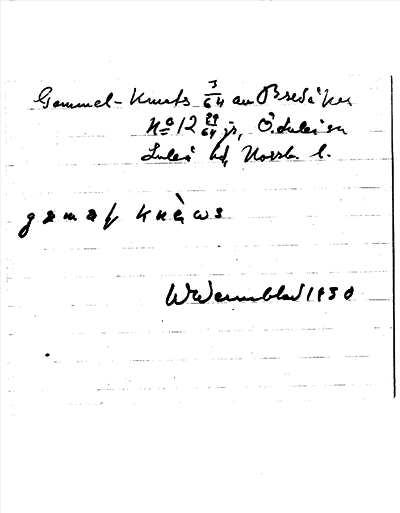 Gammel-Knuts 3/64 av Bredåker
No 12 29/64 jr, Ö.Luleå sn
Luleå hd Norrb. l.
gamaf knàws
W Wennblad 1930